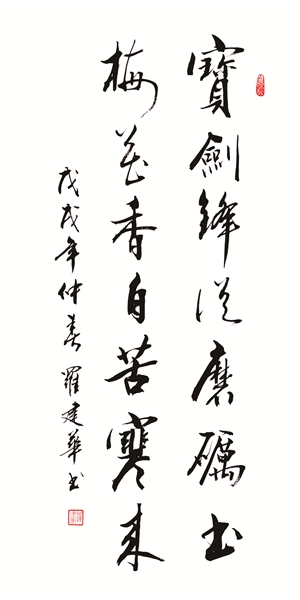 寶劍鋒從磨礪出
梅花香自苦寒來
戊戌年仲春 羅建華书